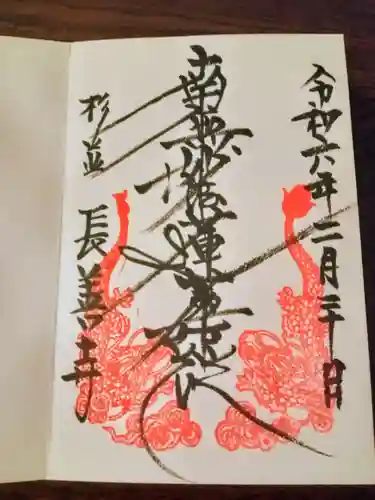 令和六年二月二十日
南無妙法蓮華経
杉並 長善寺